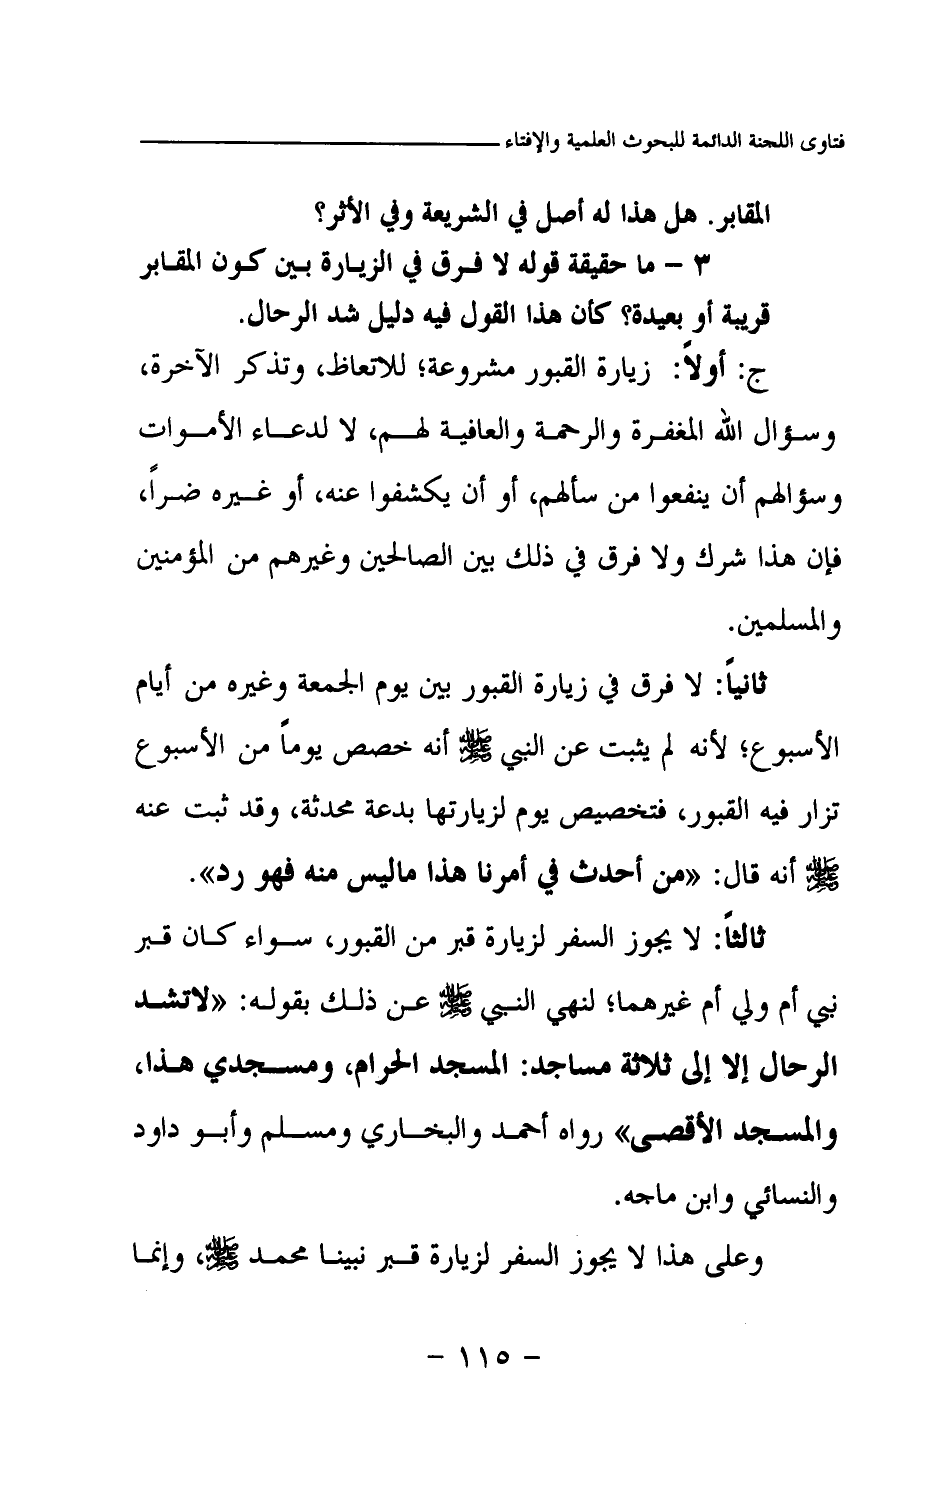 فتاوى اللجنة الدائمة للبحوث العلمية والإفتاء
المقابر. هل هذا له أصل في الشريعة وفي الأثر؟
٣ – ما حقيقة قوله لا فرق في الزيارة بين كون المقابر
قريبة أو بعيدة؟ كأن هذا القول فيه دليل شد الرحال.
ج: أولاً: زيارة القبور مشروعة؛ للاتعاظ، وتذكر الآخرة،
وسؤال الله المغفرة والرحمة والعافية لهم، لا لدعاء الأموات
وسؤالهم أن ينفعوا من سألهم، أو أن يكشفوا عنه، أو غيره ضراً،
فإن هذا شرك ولا فرق في ذلك بين الصالحين وغيرهم من المؤمنين
والمسلمين.
ثانياً: لا فرق في زيارة القبور بين يوم الجمعة وغيره من أيام
الأسبوع؛ لأنه لم يثبت عن النبي ﷺ أنه خصص يوماً من الأسبوع
تزار فيه القبور، فتخصيص يوم لزيارتها بدعة محدثة، وقد ثبت عنه
ﷺ أنه قال: «من أحدث في أمرنا هذا ماليس منه فهو رد».
ثالثاً: لا يجوز السفر لزيارة قبر من القبور، سواء كان قبر
نبي أم ولي أم غيرهما؛ لنهي النبي ﷺ عن ذلك بقوله: «لاتشد
الرحال إلا إلى ثلاثة مساجد: المسجد الحرام، ومسجدي هذا،
والمسجد الأقصى» رواه أحمد والبخاري ومسلم وأبو داود
والنسائي وابن ماجه.
وعلى هذا لا يجوز السفر لزيارة قبر نبينا محمد ﷺ، وإنما
– ١١٥ –